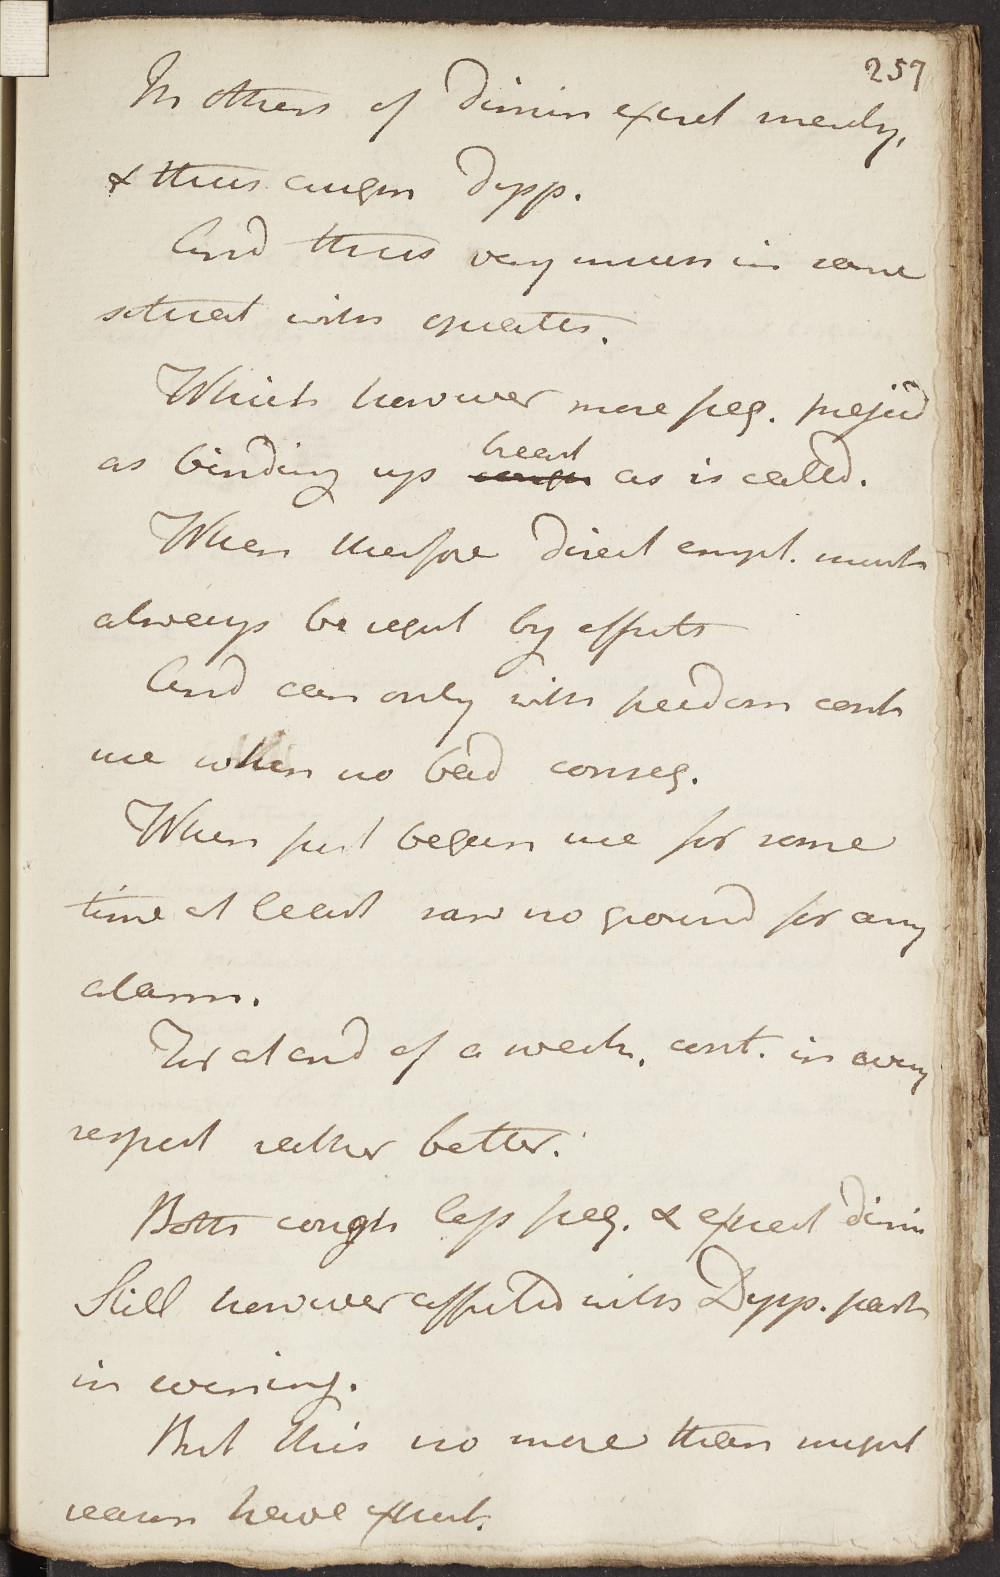 257
In others of dimin expect merely,
& thus augm Dysp.
And thus very much in some
situat with opiates.
Which however more freq. prejud
as binding up breast as is called.
When therefore direct empl. must
always be regul by effects
And can only with freedom cont
use when no bad conseq.
When first begun use for some
time at least saw no ground for any
alarm.
For at end of a week, cont. in every
respect rather better.
Both cough less freq. & expect dimin
Still however affected with Dysp. part
in evening.
But this no more than might
reason have expect.